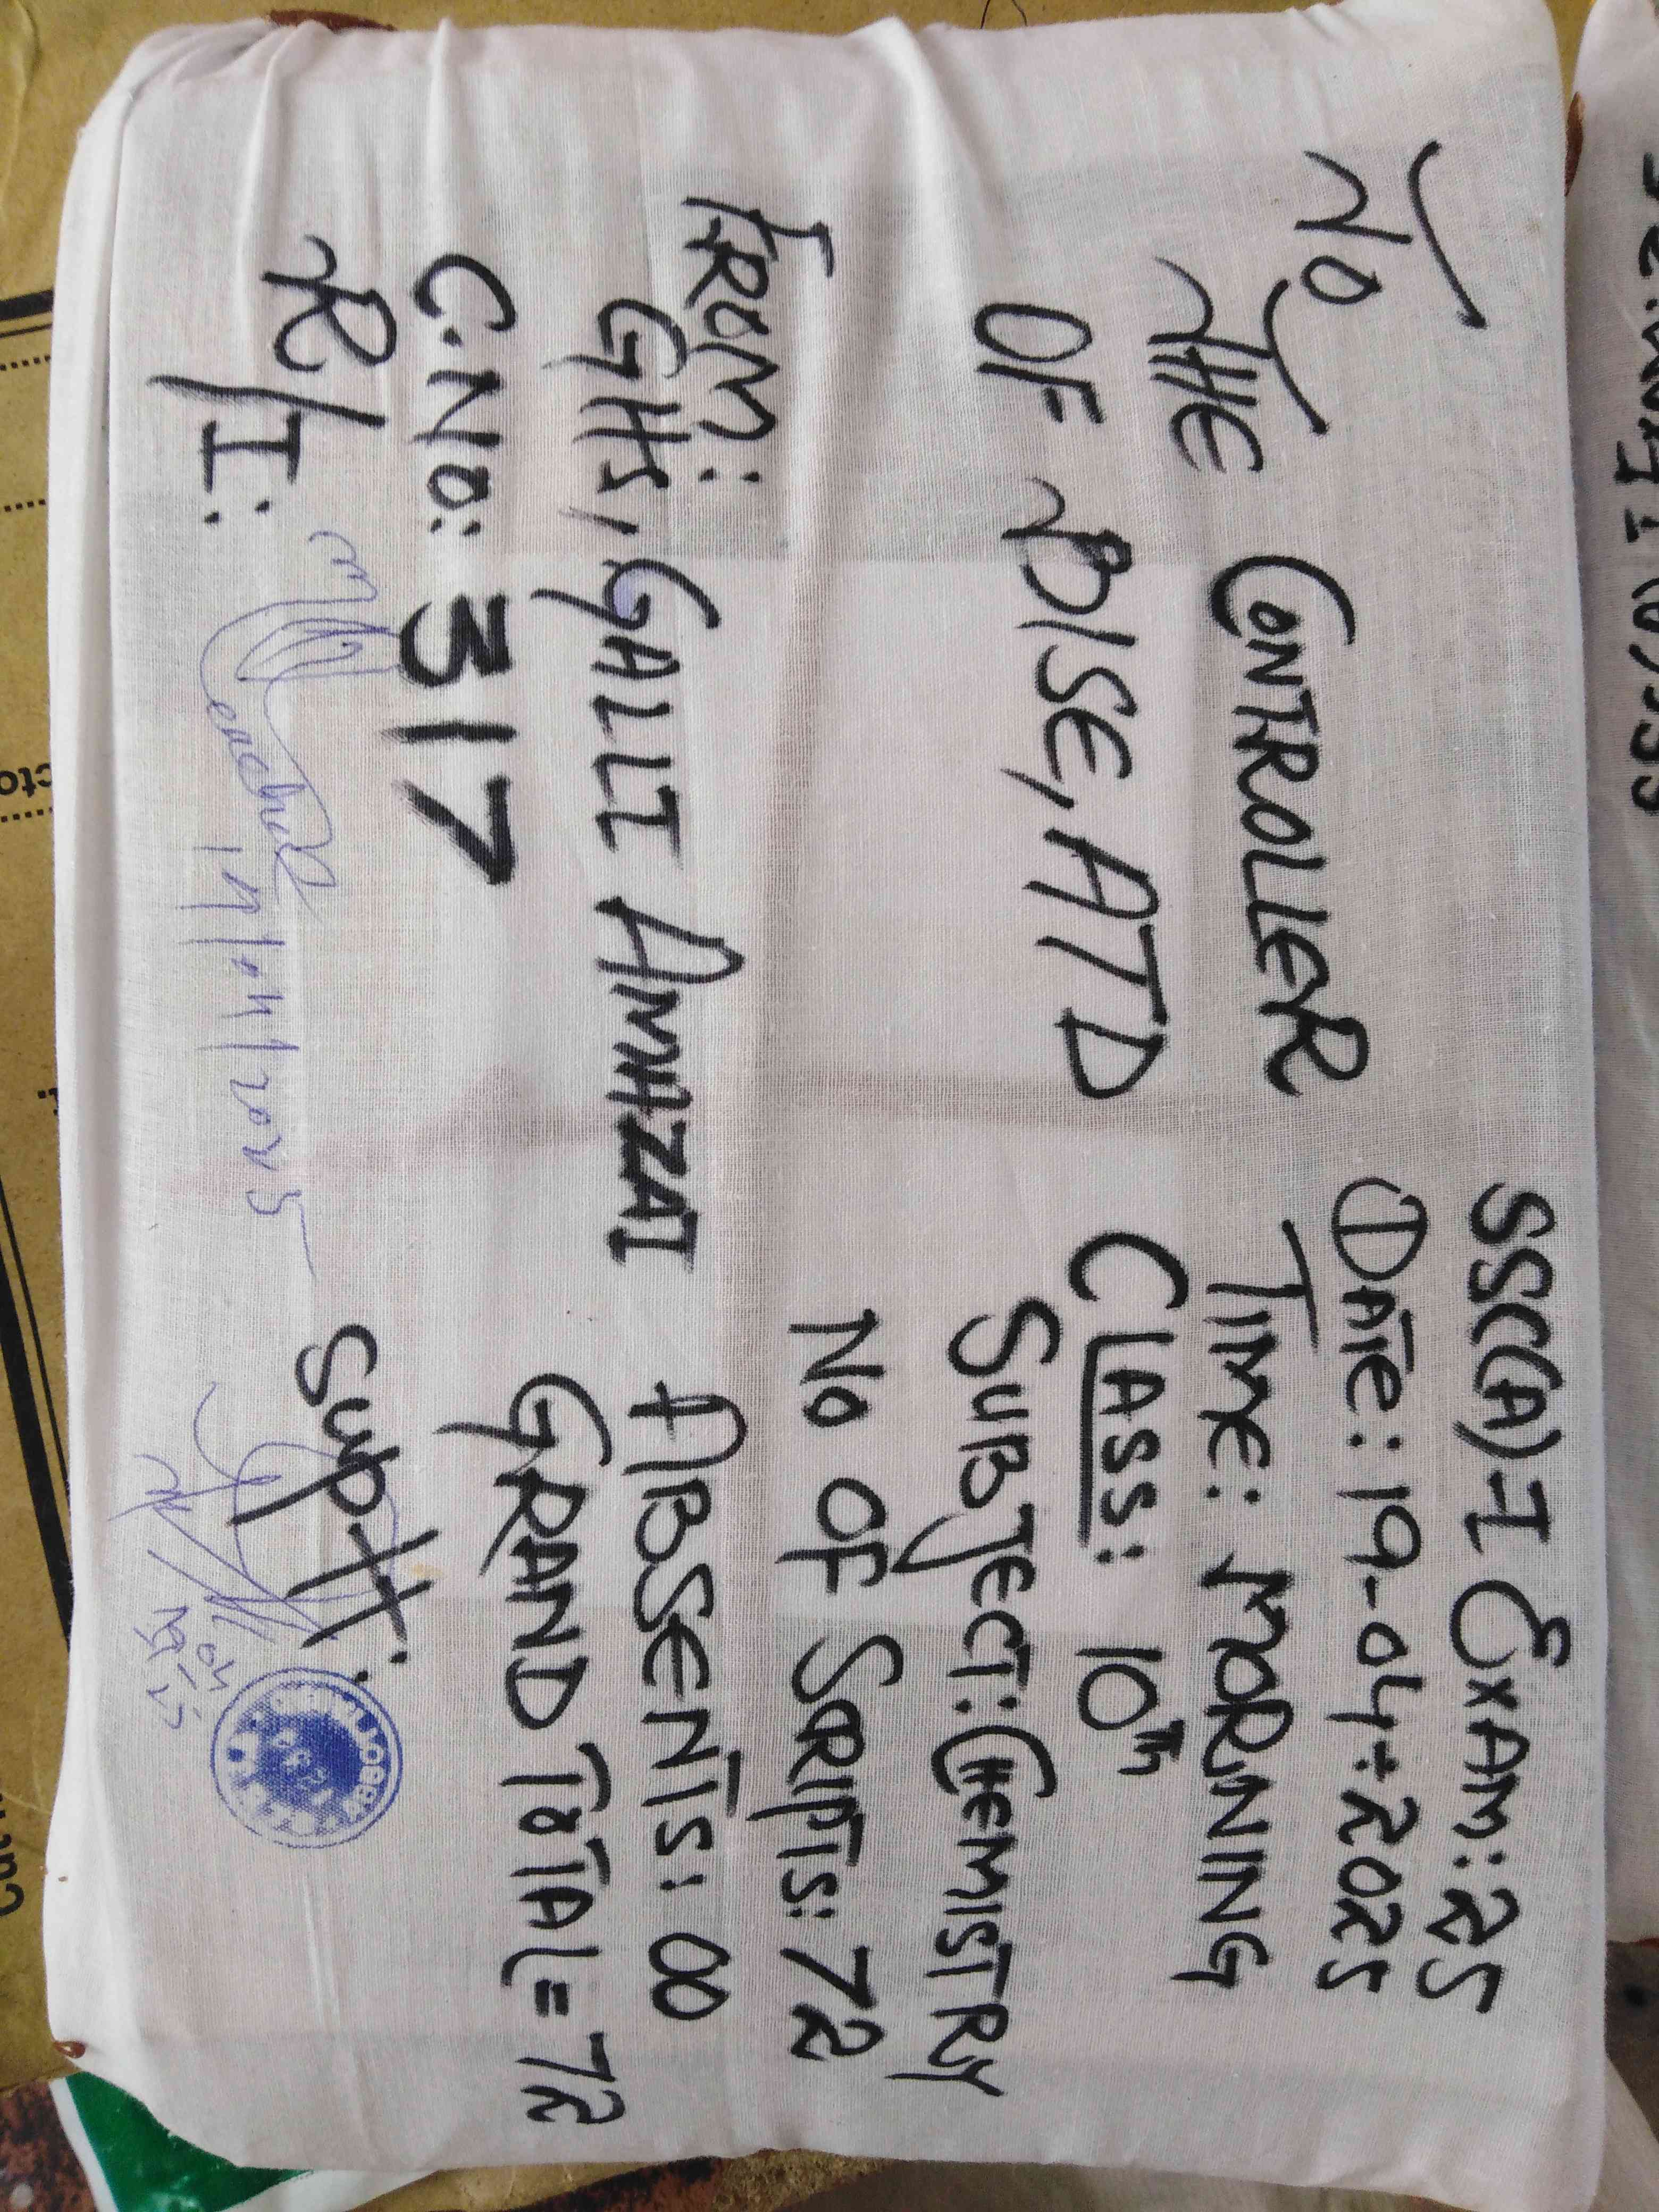 To
THE CONTROLLER
OF BISE, ATD
FROM:
GHS, GALLI AMHZAI
C.No: 317
R/I:
19/04/2025
SSC(A)-I EXAM: 25
DATE: 19-04-2025
TIME: MORNING
CLASS: 10th
SUBJECT: CHEMISTRY
No OF SCRIPTS: 72
ABSENTS: 00
GRAND TOTAL = 72
SUPTT:
SSC(A) I EXAM: 25